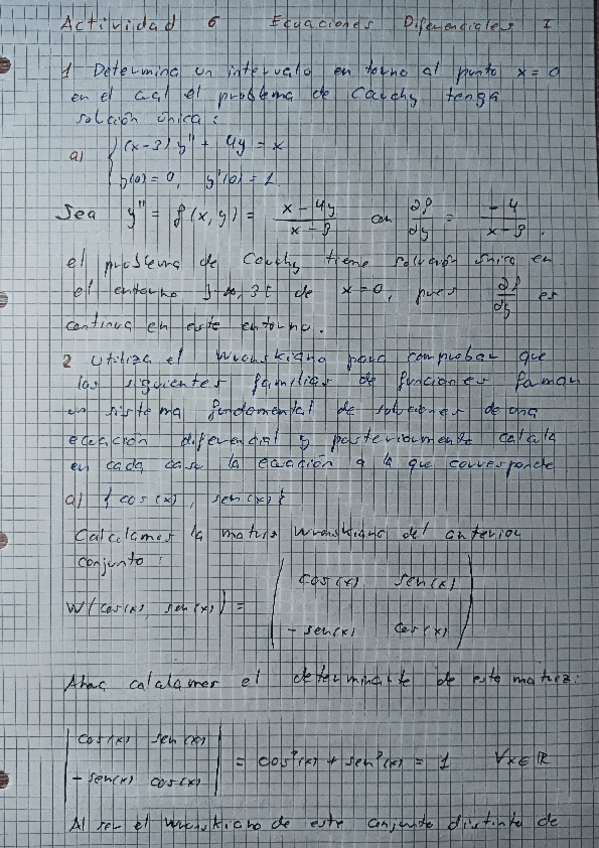 Actividad 6 Ecuaciones Diferenciales I
1 Determina un intervalo en torno al punto x = 0
en el cual el problema de Cauchy tenga
solución única:
a) { (x-3) y'' + 4y = x
y(0) = 0, y'(0) = 1
Sea y'' = f(x, y) = (x - 4y)/(x - 3) con ∂f/∂y = -4/(x - 3).
el problema de Cauchy tiene solución única en
el entorno ]-∞, 3[ de x = 0, pues ∂f/∂y es
continua en este entorno.
2 Utiliza el wronskiano para comprobar que
las siguientes familias de funciones forman
un sistema fundamental de soluciones de una
ecuación diferencial y posteriormente calcula
en cada caso la ecuación a la que corresponde
a) { cos(x), sen(x) }
Calculamos la matriz wronskiana del anterior
conjunto:
cos(x) sen(x)
W(cos(x), sen(x)) =
-sen(x) cos(x)
Ahora calculamos el determinante de este matriz:
cos(x) sen(x)
= cos²(x) + sen²(x) = 1 ∀x∈ℝ
-sen(x) cos(x)
Al ser el wronskiano de este conjunto distinto de